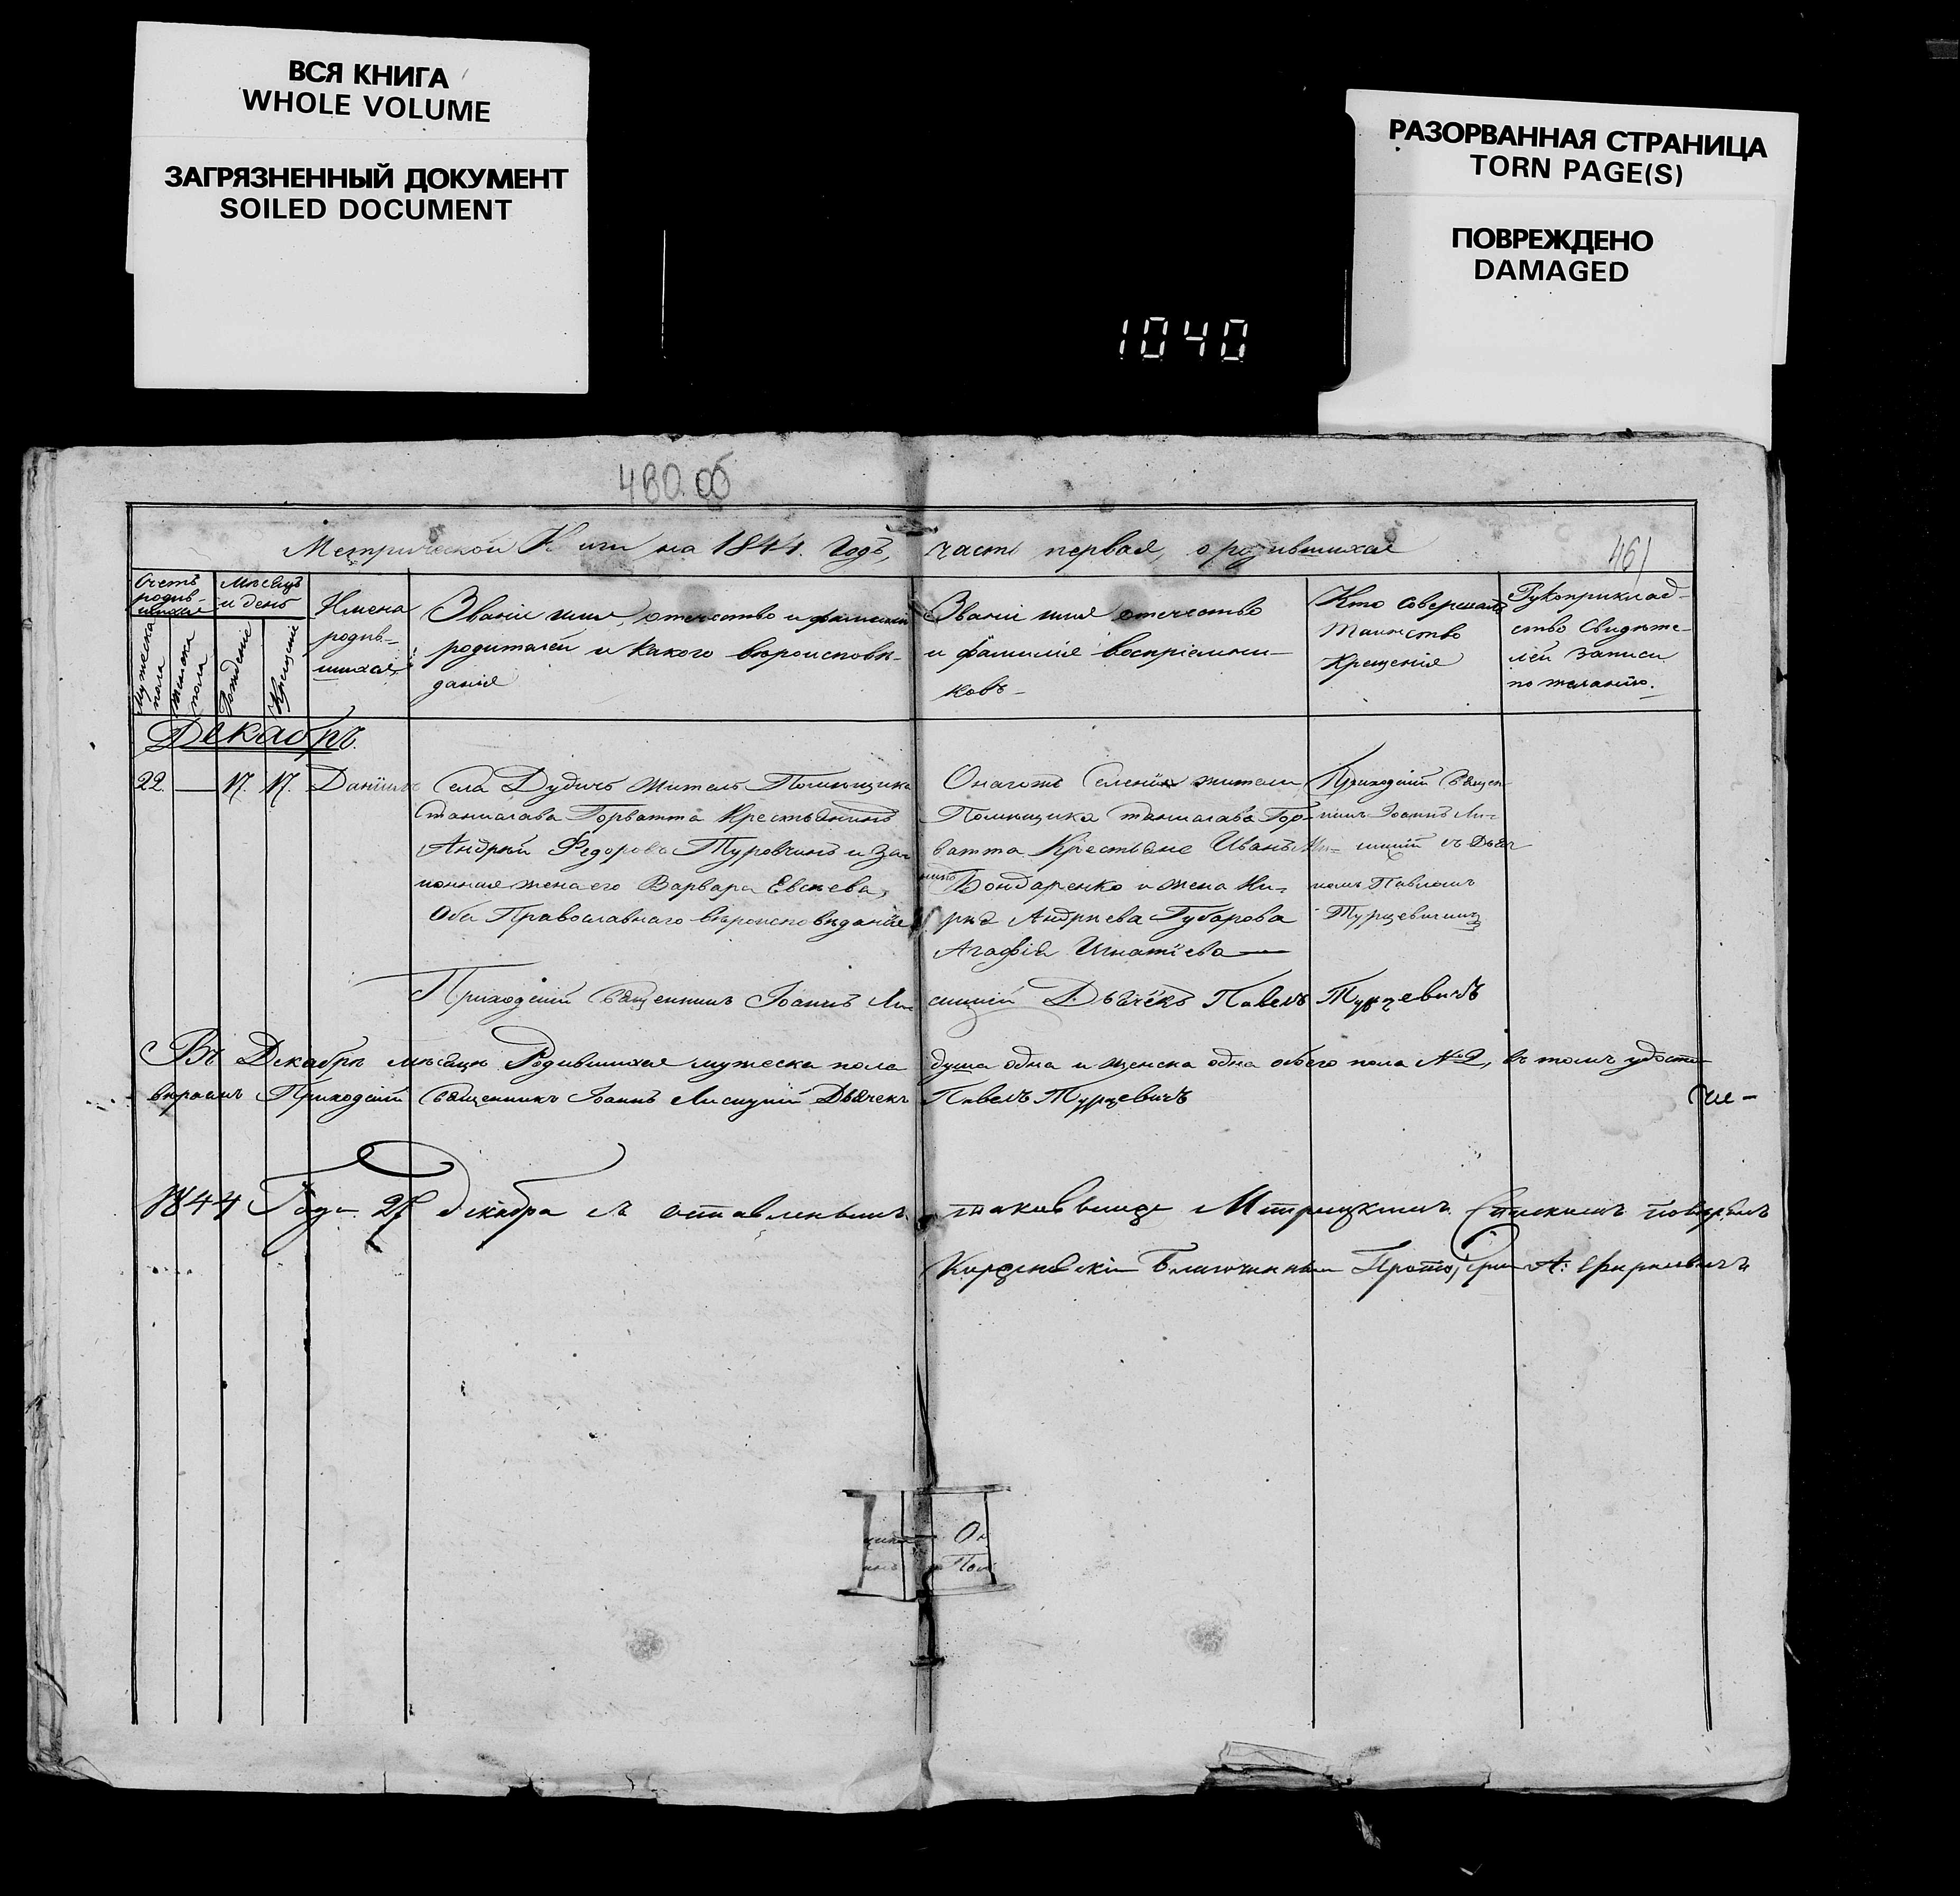 ВСЯ КНИГА
WHOLE VOLUME
ЗАГРЯЗНЕННЫЙ ДОКУМЕНТ
SOILED DOCUMENT
РАЗОРВАННАЯ СТРАНИЦА
TORN PAGE(S)
ПОВРЕЖДЕНО
DAMAGED
1040
480.об
461
Метрической Книги на 1844. Годъ, часть первая, о родившихся
Счетъ родив-шихся
Мужеска пола
Женска пола
Мѣсяцъ и день
Рожденіе
Крещеніе
Имена
родив-
шихся
Званіе имя, отечество и фамилія
родителей и какого вѣроисповѣ-
данія
Званіе имя отечество
и фамилія воспріемни-
ковъ
Кто совершалъ
таинство
крещенія
Рукоприклад-
ство свидѣте-
лей записи
по желанію.
Декабрь
22. — 17. 17. Даніилъ
Села Дудичъ житель Помѣщика
Станислава Горватта Крестьянинъ
Андрей Федоровъ Туровчинъ и За-
конная жена его Варвара Евсеева,
Оба Православнаго вѣроисповѣданія
Онагоже Селенія жители
Помѣщика Станислава Гор-
ватта Крестьяне Иванъ
Бондаренко и жена Ки-
рила Андреева Губарова
Агафія Игнатіева
Приходскій Священ-
никъ Іоаннъ Ли-
сицкій съ Дьяч-
комъ Павломъ
Турцевичемъ
Приходскій Священникъ Іоаннъ Лисицкій Дьячекъ Павелъ Турцевичъ
Въ Декабрѣ мѣсяцѣ Родившихся мужеска пола душа одна и женска одна обоего пола № 2, въ томъ удосто-
вѣряемъ Приходскій Священникъ Іоаннъ Лисицкій Дьячекъ Павелъ Турцевичъ
1844 Года 27 декабря съ оставленнымъ таковымже Метрическимъ Спискомъ повѣрялъ
Благочинный А: